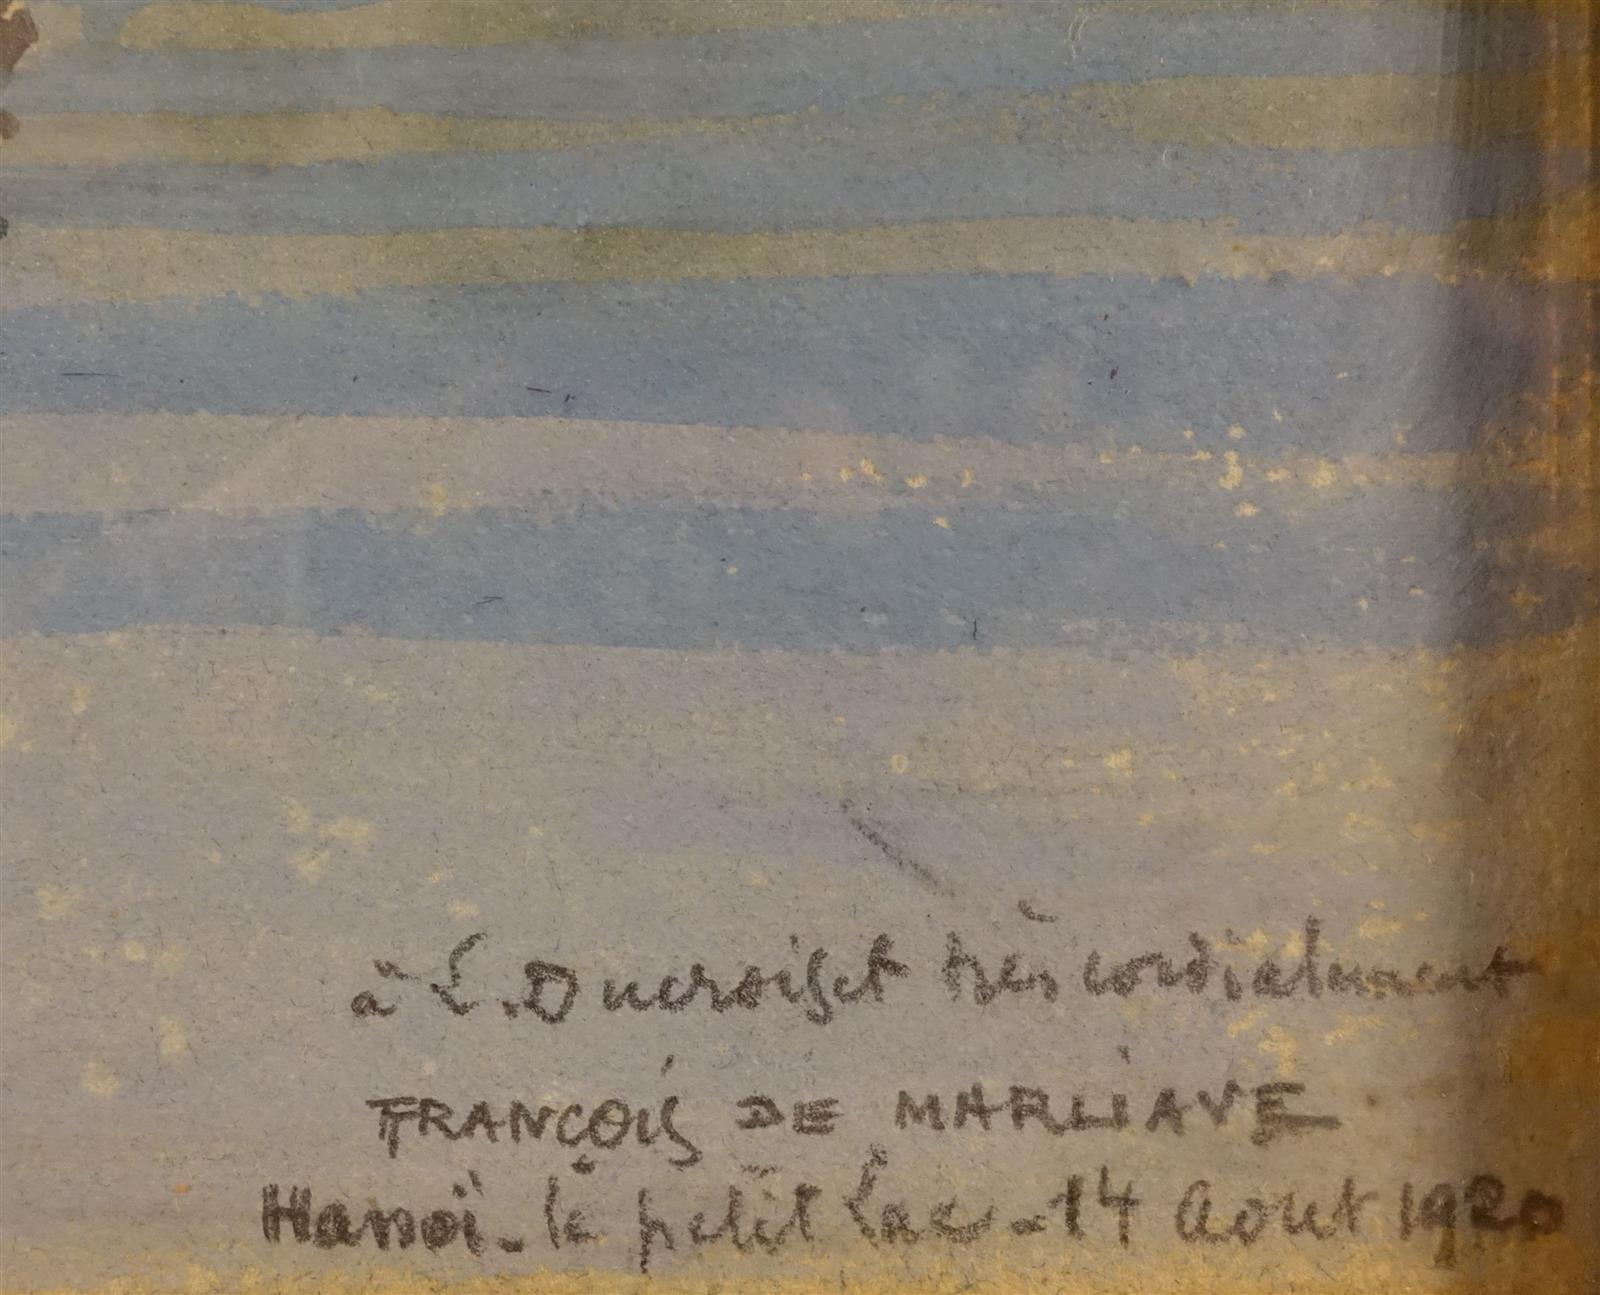 à L. Ducroiset très cordialement
FRANÇOIS DE MARLIAVE
Hanoï - le petit Lac - 14 Aout 1920